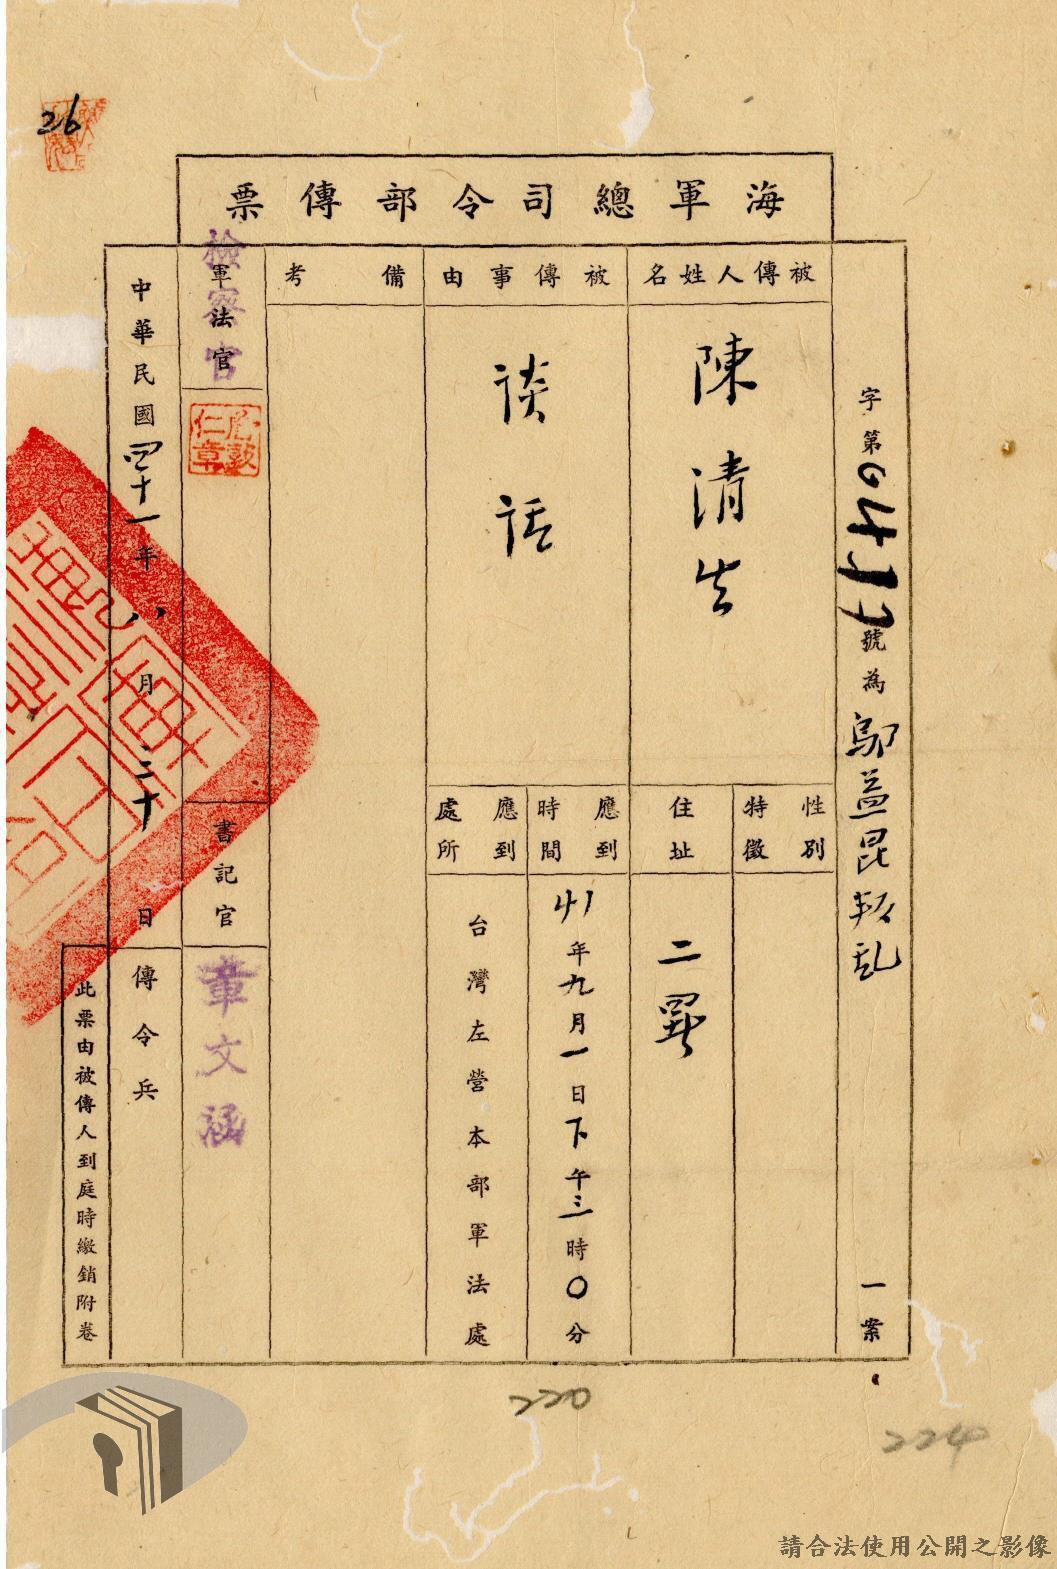 26
海軍總司令部傳票
字第0417號為鄔益昆叛乱一案
被傳人姓名
陳清生
性別
特徵
住址
二罪
被傳事由
談話
應到時間
41年九月一日下午三時0分
應到處所
台灣左營本部軍法處
備考
軍法官
檢察官
書記官
章文涵
中華民國四十一年八月三十日
傳令兵
此票由被傳人到庭時繳銷附卷
220
224
請合法使用公開之影像